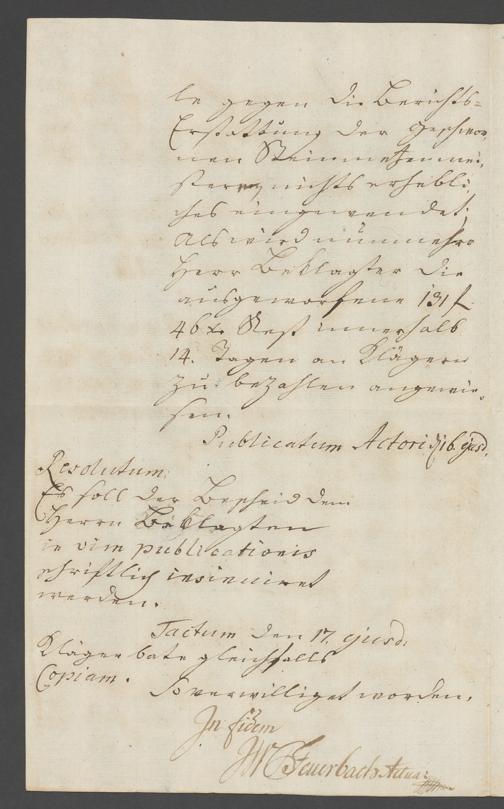 le gegen die Berichts-
Erstattung der geschwor
nen Steinmetzenmei-
stern nichts erhebli
ches eingewendet;
Als wird nunmehro
Herr Beklagter die
ausgeworfene 131 f.
46 xr. Rest innerhalb
14. Tagen an Klägern
zu bezahlen angewie-
sen.
Publicatum Actori d. 16. ejusd.
Resolutum.
Es soll der Bescheid dem
Herrn Beklagten
in vim publicationis
schriftlich insinuiret
werden.
Factum den 17. ejusd.
Kläger bate gleichfalls
Copiam.
So verwilliget worden.
In fidem
Feuerbach Actuar